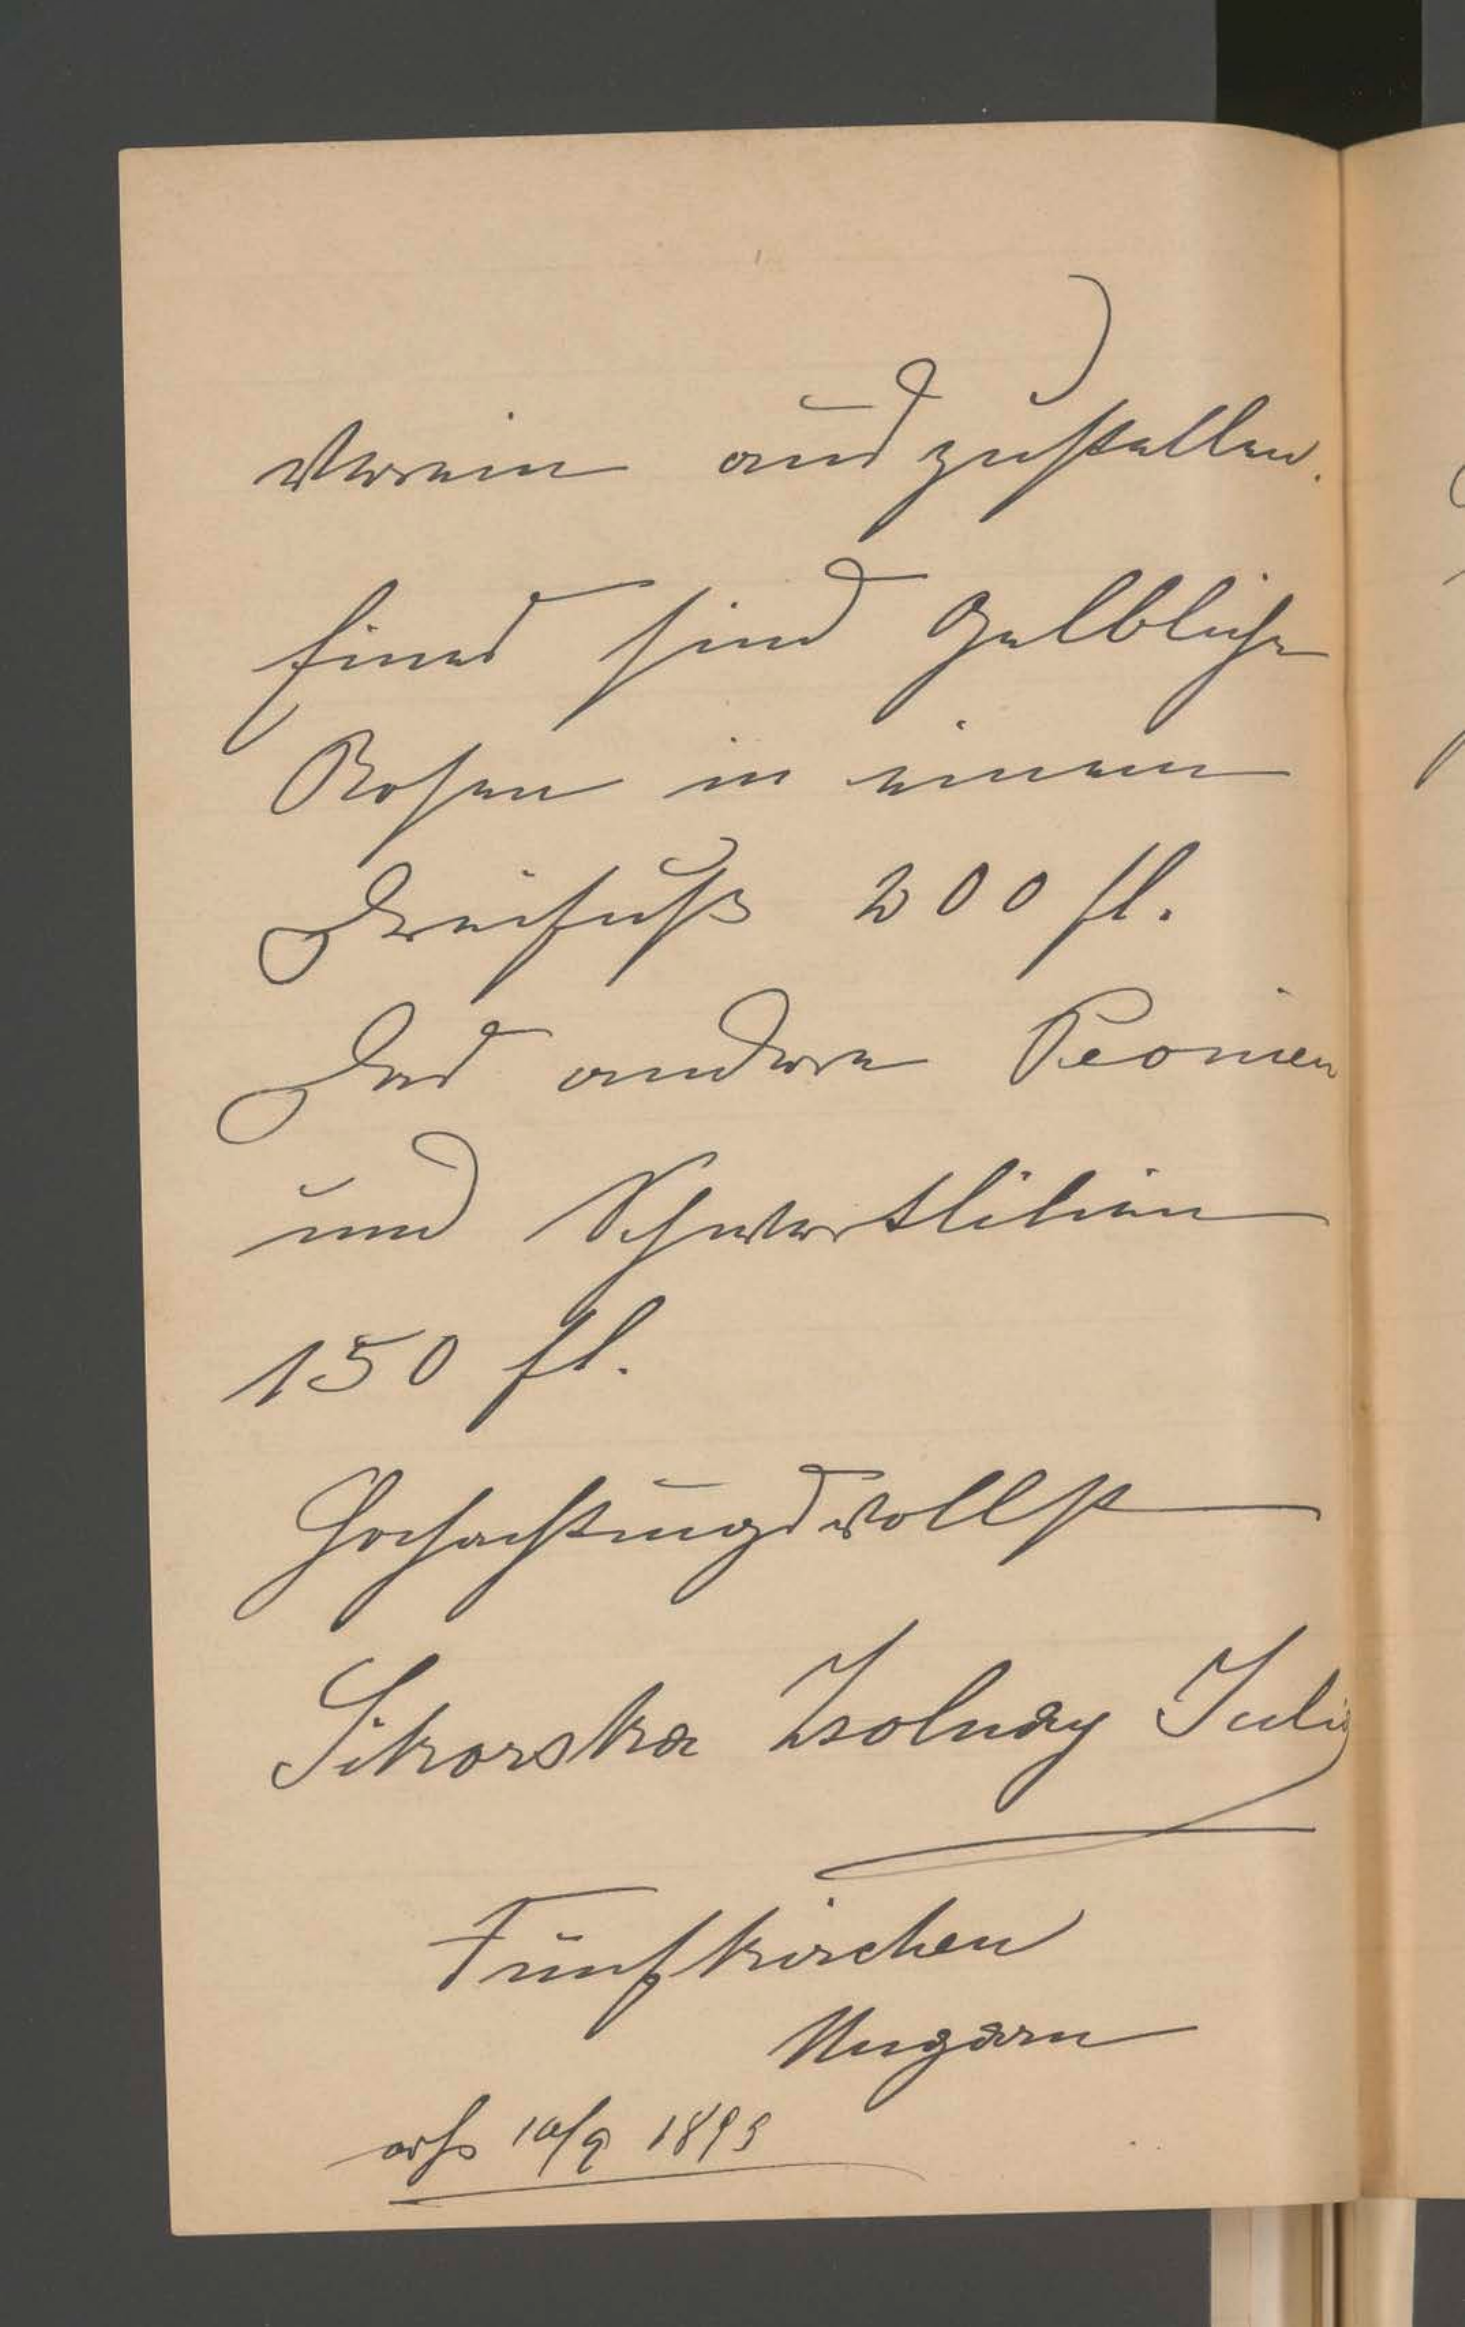 Verein auszustellen.
Eines sind gelbliche
Rosen in einem
Dreifuß 200 fl.
Das andere Peonien
und Schwertlilien
150 fl.
Hochachtungsvollst
Sikorska Zsolnay Julia
Fünfkirchen
Ungarn
10/9 1893